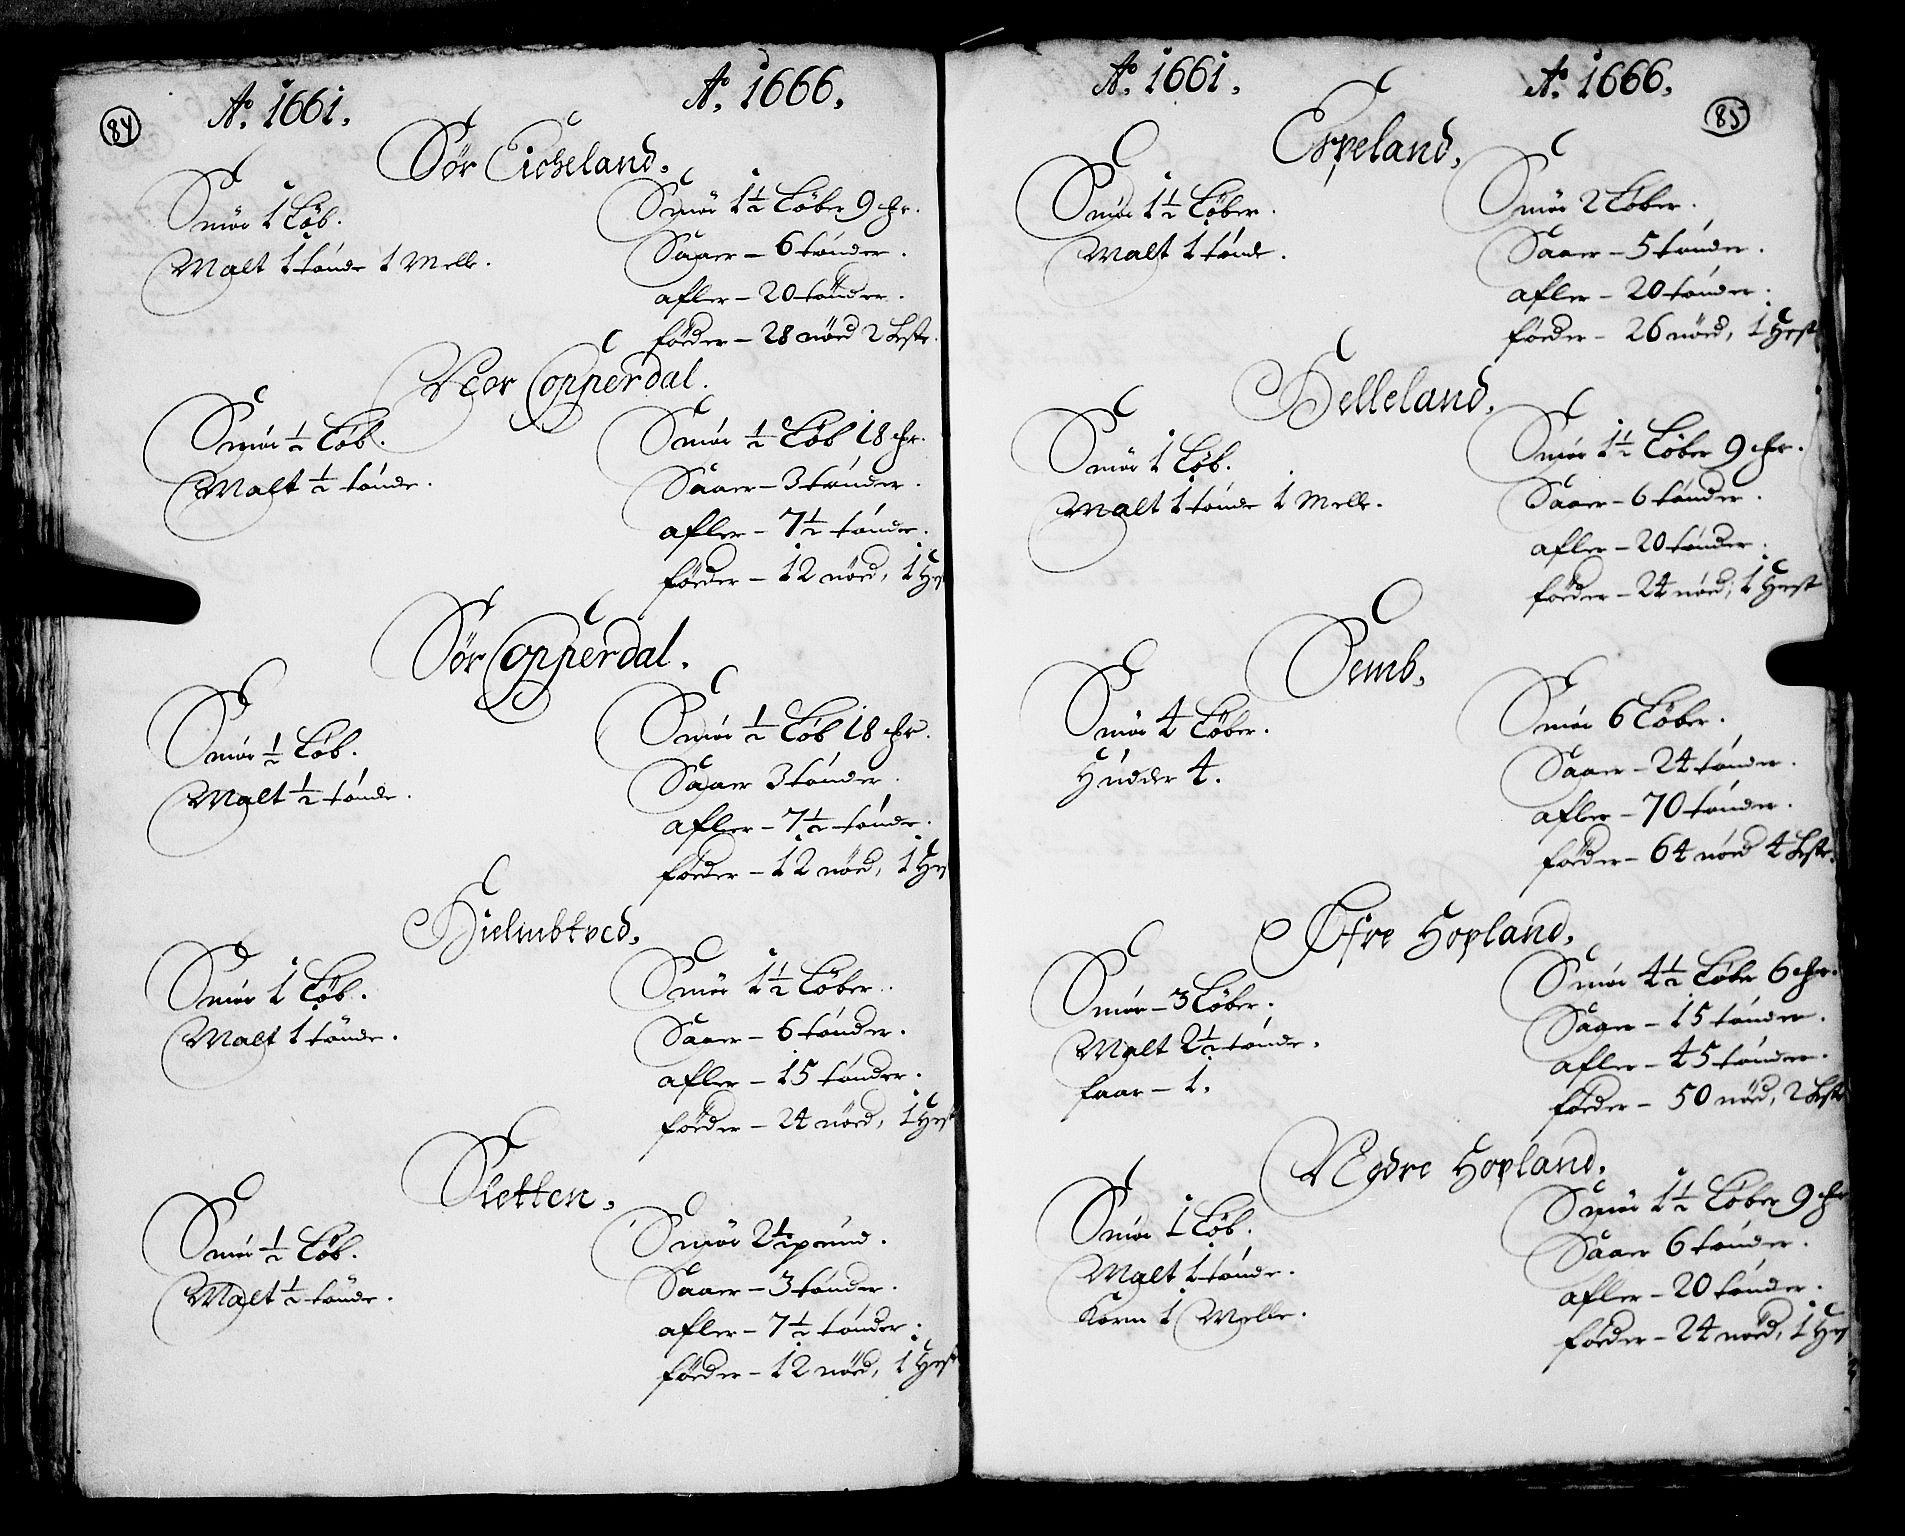 84
Aº. 1661.
Aº. 1666.
Sör Eicheland.
Smör 1 Löb.
Malt 1 tönde 1 Melle.
Smör 1½ Löber 9 mr.
Saaer – 6 tönder.
afler – 20 tönder.
föeder – 28 nöed 2 heste.
Neor Copperdal.
Smör ½ Löb.
Malt ½ tönde.
Smör ½ Löb 18 mr.
Saaer – 3 tönder.
afler – 7½ tönde.
föeder – 12 nöed, 1 Hest
Sör Copperdal.
Smör ½ Löb.
Malt ½ tönde.
Smör ½ Löb 18 mr.
Saaer 3 tönder.
afler – 7½ tönde.
föeder – 12 nöed, 1 Hes
Hielmbtved.
Smör 1 Löb.
Malt 1 tönde.
Smör 1½ Löber.
Saaer – 6 tönder.
afler – 15 tönder.
föeder – 24 nöed, 1 Hest
Sletten.
Smör ½ Löb.
Malt ½ tönde.
Smör 2½ pund.
Saaer – 3 tönder.
afler – 7½ tönder.
föeder – 12 nöed, 1 Hest
85
Aº. 1661.
Aº. 1666.
Espeland.
Smör 1½ Löber.
Malt 1 tönde.
Smör 2 Löber.
Saaer – 5 tönder.
afler – 20 tönder.
föeder – 26 nöed, 1 Hest
Helleland.
Smör 1 Löb.
Malt 1 tönde 1 Melle.
Smör 1½ Löber 9 mr.
Saaer – 6 tönder.
afler – 20 tönder.
föeder – 24 nöed, 1 Hest
Semb.
Smör 4 Löber.
Hudder 4.
Smör 6 Löber.
Saaer – 24 tönder.
afler – 70 tönder.
föeder – 64 nöed 4 heste.
Öfre Hopland.
Smör – 3 Löber.
Malt 2½ tönde.
faar – 1.
Smör 4½ Löber 6 mr.
Saaer – 15 tönder.
afler – 45 tönder.
föeder – 50 nöed, 2 heste
Nedre Hopland.
Smör 1 Löb.
Malt 1 tönde.
Korn 1 Melle.
Smör 1½ Löber 9 mr
Saaer 6 tönder.
afler – 20 tönder.
föeder – 24 nöed, 1 Hes